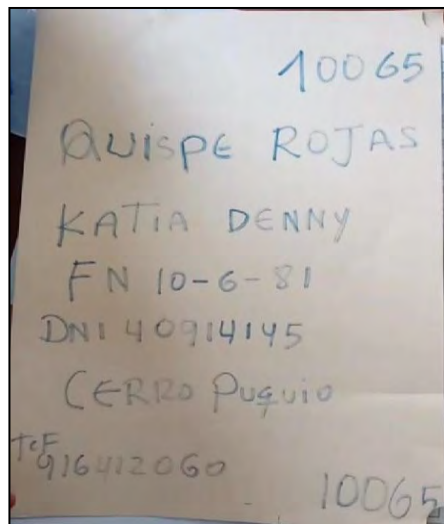 10065
QUISPE ROJAS
KATIA DENNY
FN 10-6-81
DNI 40914145
CERRO PUQUIO
TEF
916412060
10065